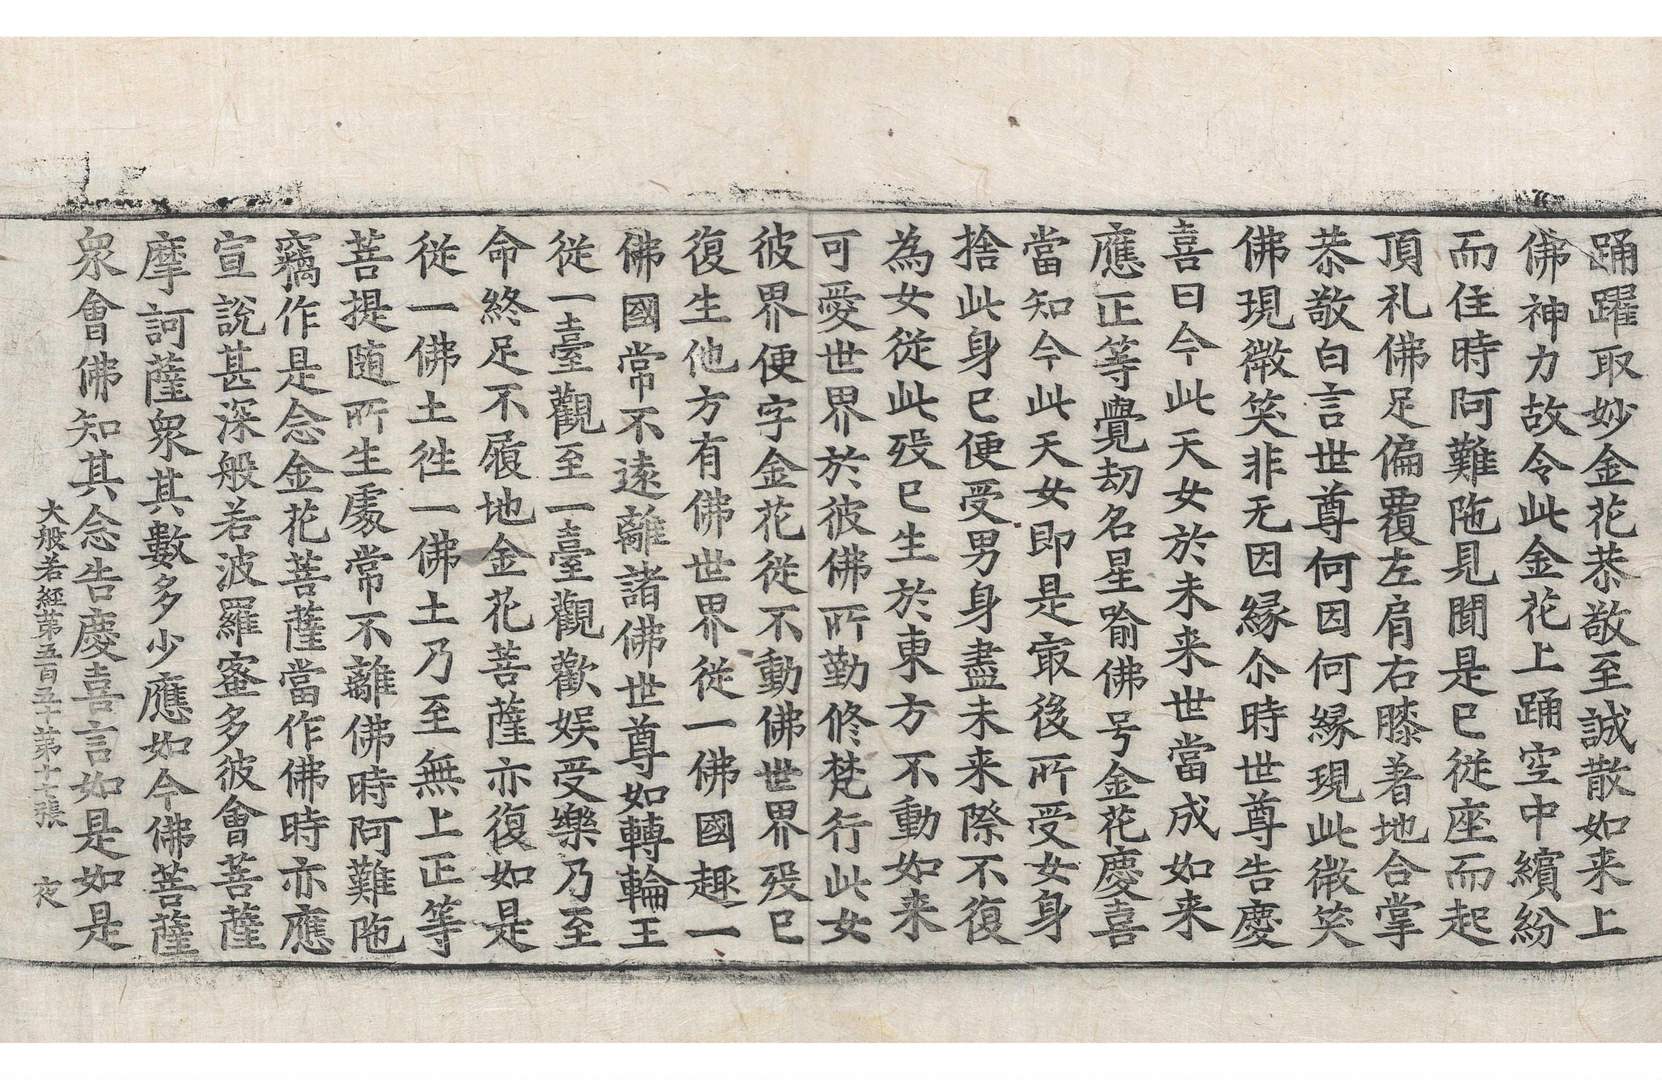 踊躍取妙金花恭敬至誠散如来上
佛神力故令此金花上踊空中繽紛
而住時阿難陁見聞是已從座而起
頂礼佛足偏覆左肩右膝著地合掌
恭敬白言世尊何因何緣現此微笑
佛現微笑非无因緣尒時世尊告慶
喜曰今此天女於未来世當成如来
應正等覺劫名星喻佛号金花慶喜
當知今此天女即是㝡後所受女身
捨此身已便受男身盡未来際不復
為女從此歿已生於東方不動如来
可愛世界於彼佛所勤修梵行此女
彼界便字金花從不動佛世界歿已
復生他方有佛世界從一佛國趣一
佛國常不遠離諸佛世尊如轉輪王
從一臺觀至一臺觀歡娱受樂乃至
命終足不履地金花菩薩亦復如是
從一佛土徃一佛土乃至無上正等
菩提随所生處常不離佛時阿難陁
竊作是念金花菩薩當作佛時亦應
宣說甚深般若波羅蜜多彼會菩薩
摩訶薩衆其數多少應如今佛菩薩
衆會佛知其念告慶喜言如是如是
大般若經第五百五十第十七張 夜